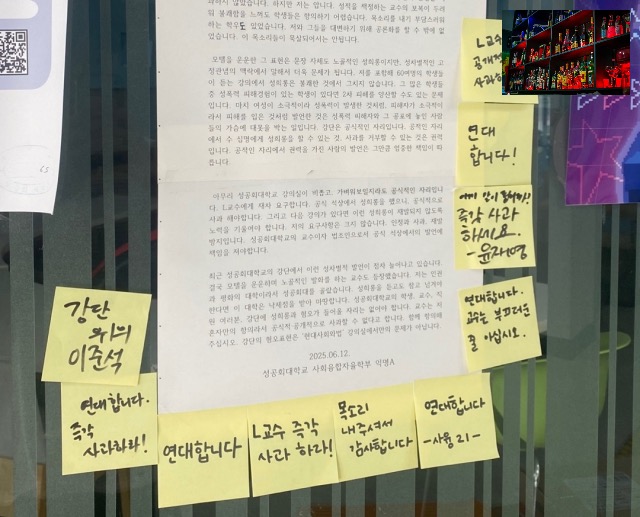 하지 않았습니다. 하지만 저는 압니다. 성적을 책정하는 교수의 보복이 두려
워 불쾌함을 느껴도 학생들은 항의하기 어렵습니다. 목소리를 내기 부담스러워
하는 학우도 있었습니다. 저와 그들을 대변하기 위해 공론화를 할 수 밖에 없
었습니다. 이 목소리들이 묵살되어서는 안됩니다.
모텔을 운운한 그 표현은 문장 자체도 노골적인 성희롱이지만, 성차별적인 고
정관념의 맥락에서 말해서 더욱 문제가 됩니다. 저를 포함해 60여명의 학생들
이 듣는 강의에서 성희롱은 불쾌한 것에서 그치지 않습니다. 그 많은 학생들
중 성폭력 피해경험이 있는 학생이 있다면 2차 피해를 양산할 수도 있는 문제
입니다. 마치 여성이 소극적이라 성폭력이 발생한 것처럼, 피해자가 소극적이
라서 피해를 입은 것처럼 발언한 것은 성폭력 피해자와 그 공포에 놓인 사람
들의 가슴에 대못을 박는 일입니다. 강단은 공식적인 자리입니다. 공적인 자리
에서 수 십명에게 성희롱을 할 수 있는 것, 사과를 거부할 수 있는 것은 권력
입니다. 공적인 자리에서 권력을 가진 사람의 발언은 그만큼 엄중한 책임이 따
릅니다.
아무리 성공회대학교 강의실이 비좁고, 가벼워보일지라도 공식적인 자리입니
다. L교수에게 재차 요구합니다. 공식 석상에서 성희롱을 했으니, 공식적으로
사과 해야합니다. 그리고 다음 강의가 있다면 이런 성희롱이 재발되지 않도록
노력을 기울여야 합니다. 저의 요구사항은 크지 않습니다. 인정과 사과, 재발
방지입니다. 성공회대학교의 교수이자 법조인으로서 공식 석상에서의 발언에
책임을 져야합니다.
최근 성공회대학교의 강단에서 이런 성차별적 발언이 점차 늘어나고 있습니다.
결국 모텔을 운운하며 노골적인 발화를 하는 교수도 등장했습니다. 저는 인권
과 평화의 대학이라서 성공회대를 골랐습니다. 성희롱을 듣고도 참고 넘겨야
한다면 이 대학은 낙제점을 받아 마땅합니다. 성공회대학교의 학생, 교수, 직
원 여러분, 강단에 성희롱과 혐오가 들어올 자리는 없어야 합니다. 교수는 저
혼자만의 항의라서 공식적·공개적으로 사과할 수 없다고 합니다. 함께 항의해
주십시오. 강단의 혐오표현은 '현대사회와법' 강의실에서만의 문제가 아닙니다.
2025.06.12.
성공회대학교 사회융합자율학부 익명A
L교수
공개적
사과하
연대
합니다!
즉각 사과
하세요.
연대합니다.
교수는 부끄러운
줄 아십시오.
강단
위의
이준석
연대합니다.
즉각
사과하라!
연대합니다
L교수 즉각
사과 하라!
목소리
내주셔서
감사합니다
연대합니다